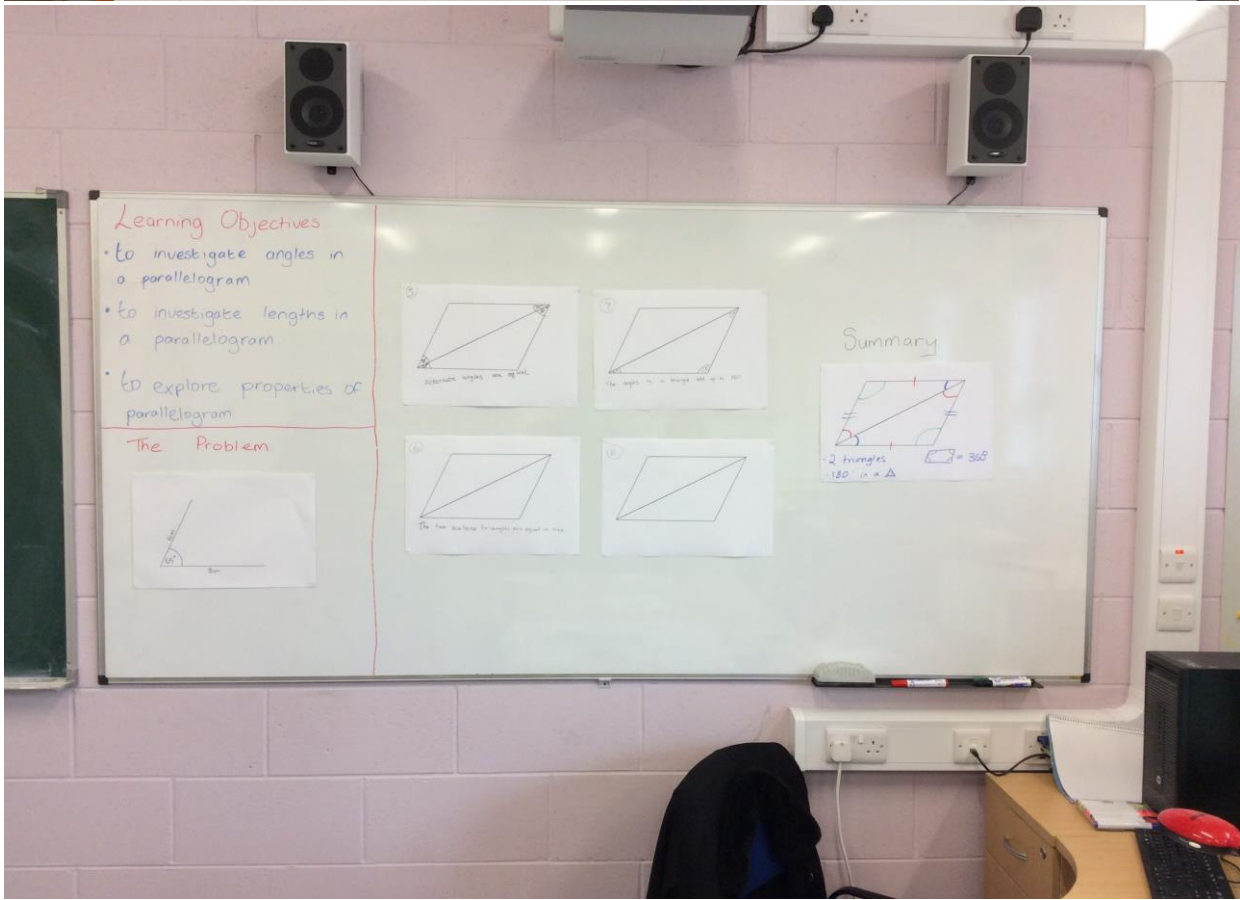 Learning Objectives
• to investigate angles in
a parallelogram
• to investigate lengths in
a parallelogram
• to explore properties of
parallelogram
The Problem
65°
8cm
5
Alternate angles are equal
7
The angles in a triangle add up to 180°
6
The two scalene triangles are equal in
8
Summary
· 2 triangles
= 360
· 180 in a △